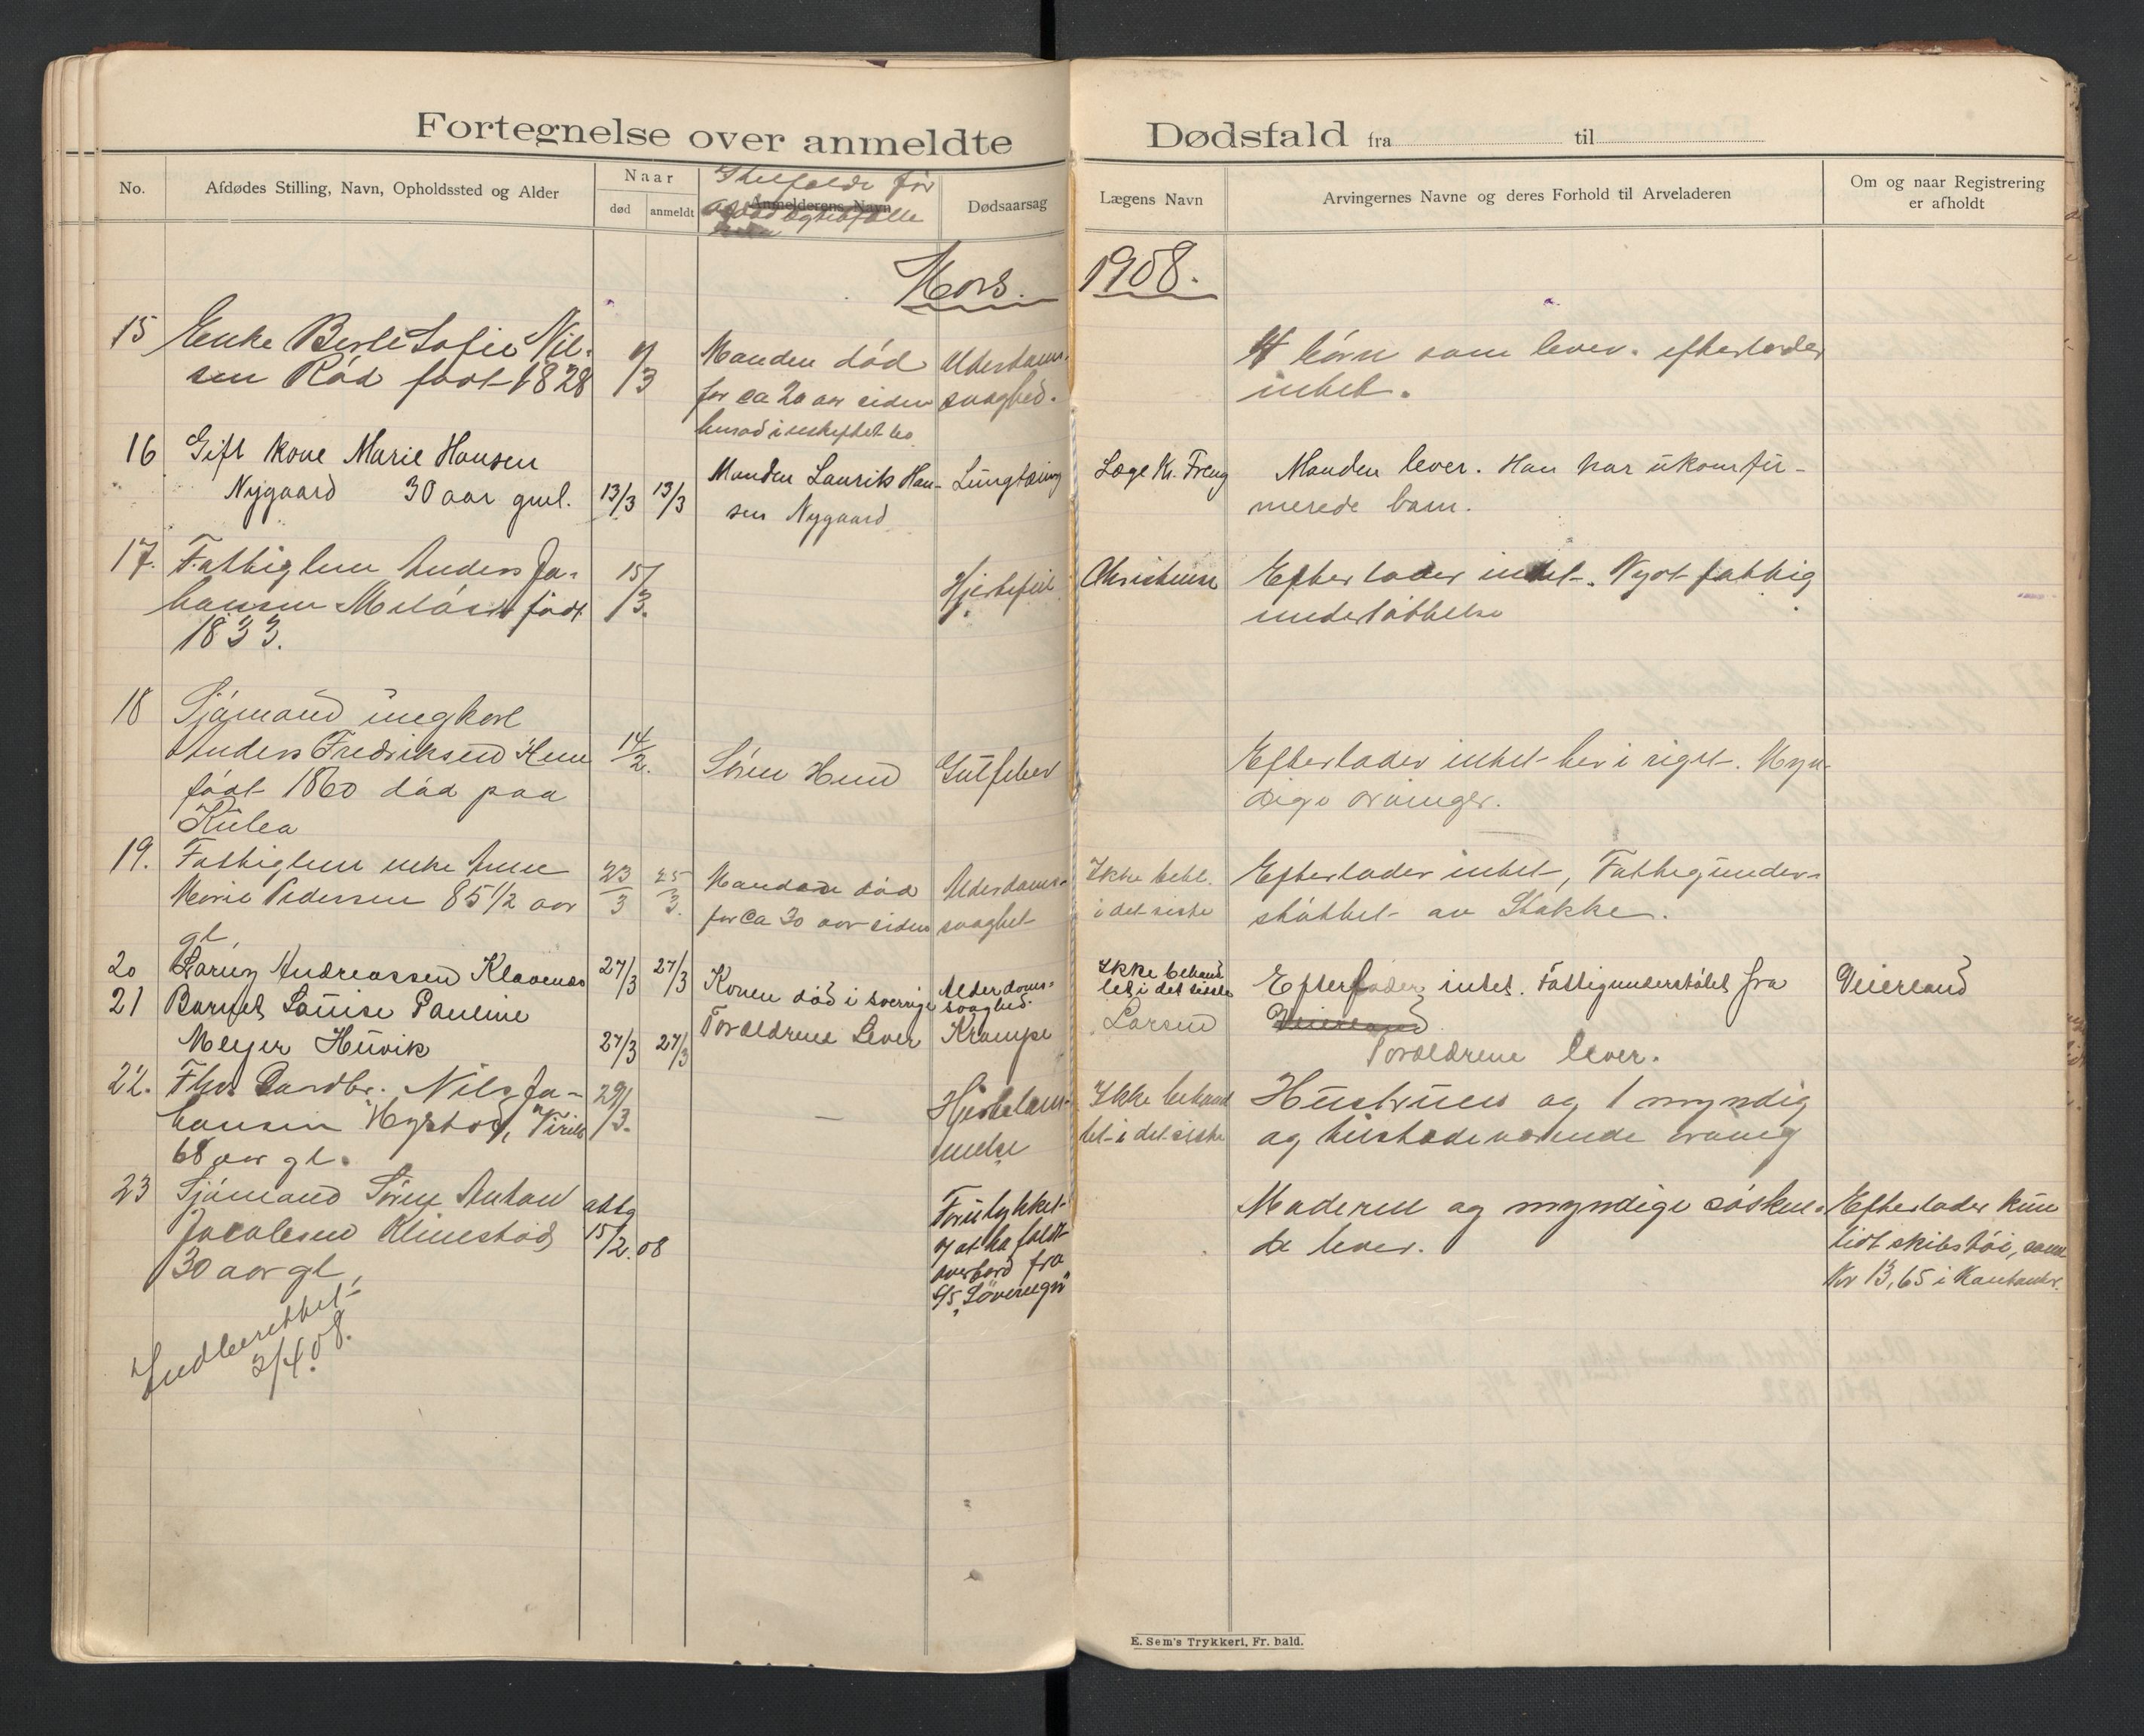 Fortegnelse over anmeldte Dødsfald fra til
No.
Afdødes Stilling, Navn, Opholdssted og Alder
Naar
død
anmeldt
Anmelderens Navn
Dødsaarsag
Lægens Navn
Arvingernes Navne og deres Forhold til Arveladeren
Om og naar Registrering
er afholdt
Mars. 1908.
15 Enke Berte Sofie Nil-
sen Röd födt 1828
9/3
Manden död
for ca 20 aar siden
hensad i uskiftet bo
Alderdoms-
svaghed.
4 börn som lever. efterlader
intet.
16 Gift kone Marie Hansen
Nygaard 30 aar gml.
13/3 13/3
Manden Laurits Han-
sen Nygaard
Lungtæring
Læge Kr. Freng
Manden lever. Han har ukomfir-
merede barn.
17. Fattiglem Anders Jo-
hansen födt
1833.
15/3.
Hjertefeil
Christensen
Efterlader intet. Nyöt fattig
understöttelse
18 Sjömand ungkarl
Anders Fredriksen Hem
födt 1860 död paa
14/2.
Sören Hem
Gulfeber
Efterlader intet her i riget. Myn-
dige arvinger.
19. Fattiglem enke Anne
Marie Pedersen 85 1/2 aar
gl,
23/3 25/3.
Manden död
for ca 30 aar siden
Alderdoms-
svaghet
Ikke beh.
i det siste
Efterlader intet, Fattigunder-
stöttet av Stokke.
20 Andreassen Klavenes
27/3 27/3
Konen död i Sverrige
Alderdoms-
svaghed
Ikke behand
let i det siste
Efterlader intet. Fattigunderstötet fra
Veierland
Veierland
21 Barnet Louise Pauline
Meyer Huvik
27/3 27/3
Foreldrene Lever
Krampe
Larsen
Foreldrene lever.
22. Fhv. Gardbr. Nils Jo-
hansen
68 aar gl.
29/3.
—
Hjertelam-
melse
Ikke behand
let i det siste
Hustruen og 1 myndig
og tilstedeværende arving
23 Sjömand Sören Anton
Jacobsen Klinestad
30 aar gl,
15/2.08
Forulykket
v/ at ha faldt
overbord fra
S/S "Löveneyn"
Moderen og myndige sösken-
de lever.
Efterlader kun
lidt skibstöi, samt
Kr 13,65 i Kontanter.
Indberettet
2/4.08.
E. Sem's Trykkeri, Fr. hald.